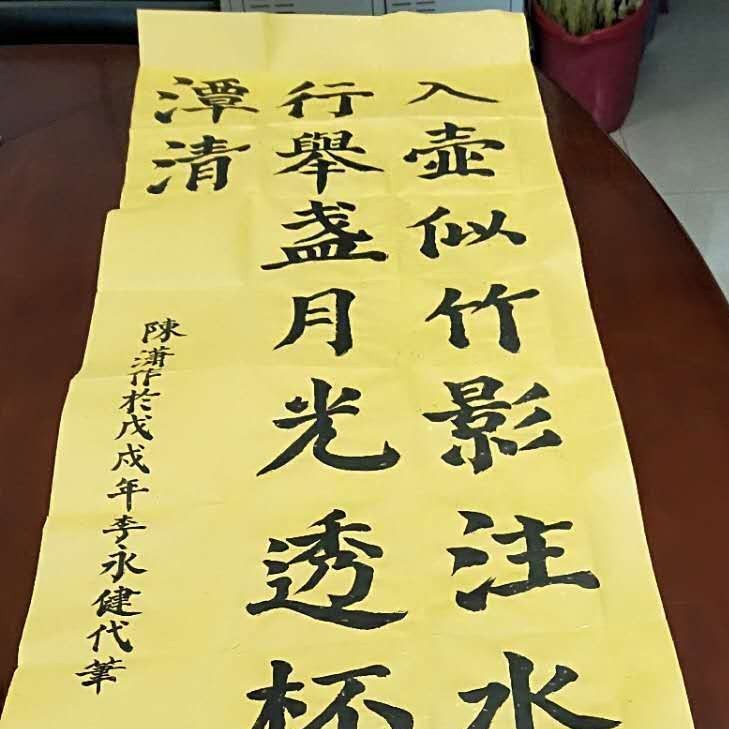 入壺似竹影注水
行舉盏月光透杯
潭清
陳瀟作於戊戌年李永健代筆